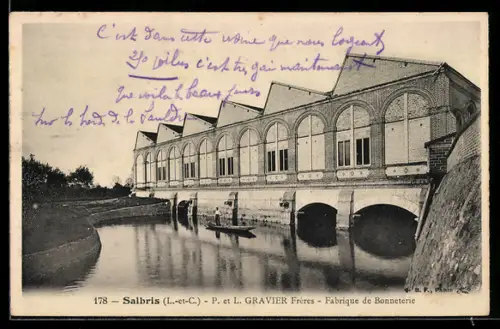 C'est dans cette usine que nous logeons
250 poilus c'est très gai maintenant
que voilà les beaux jours
sur les bords de la Sauldre
178 — Salbris (L.-et-C.) - P. et L. GRAVIER Frères - Fabrique de Bonneterie